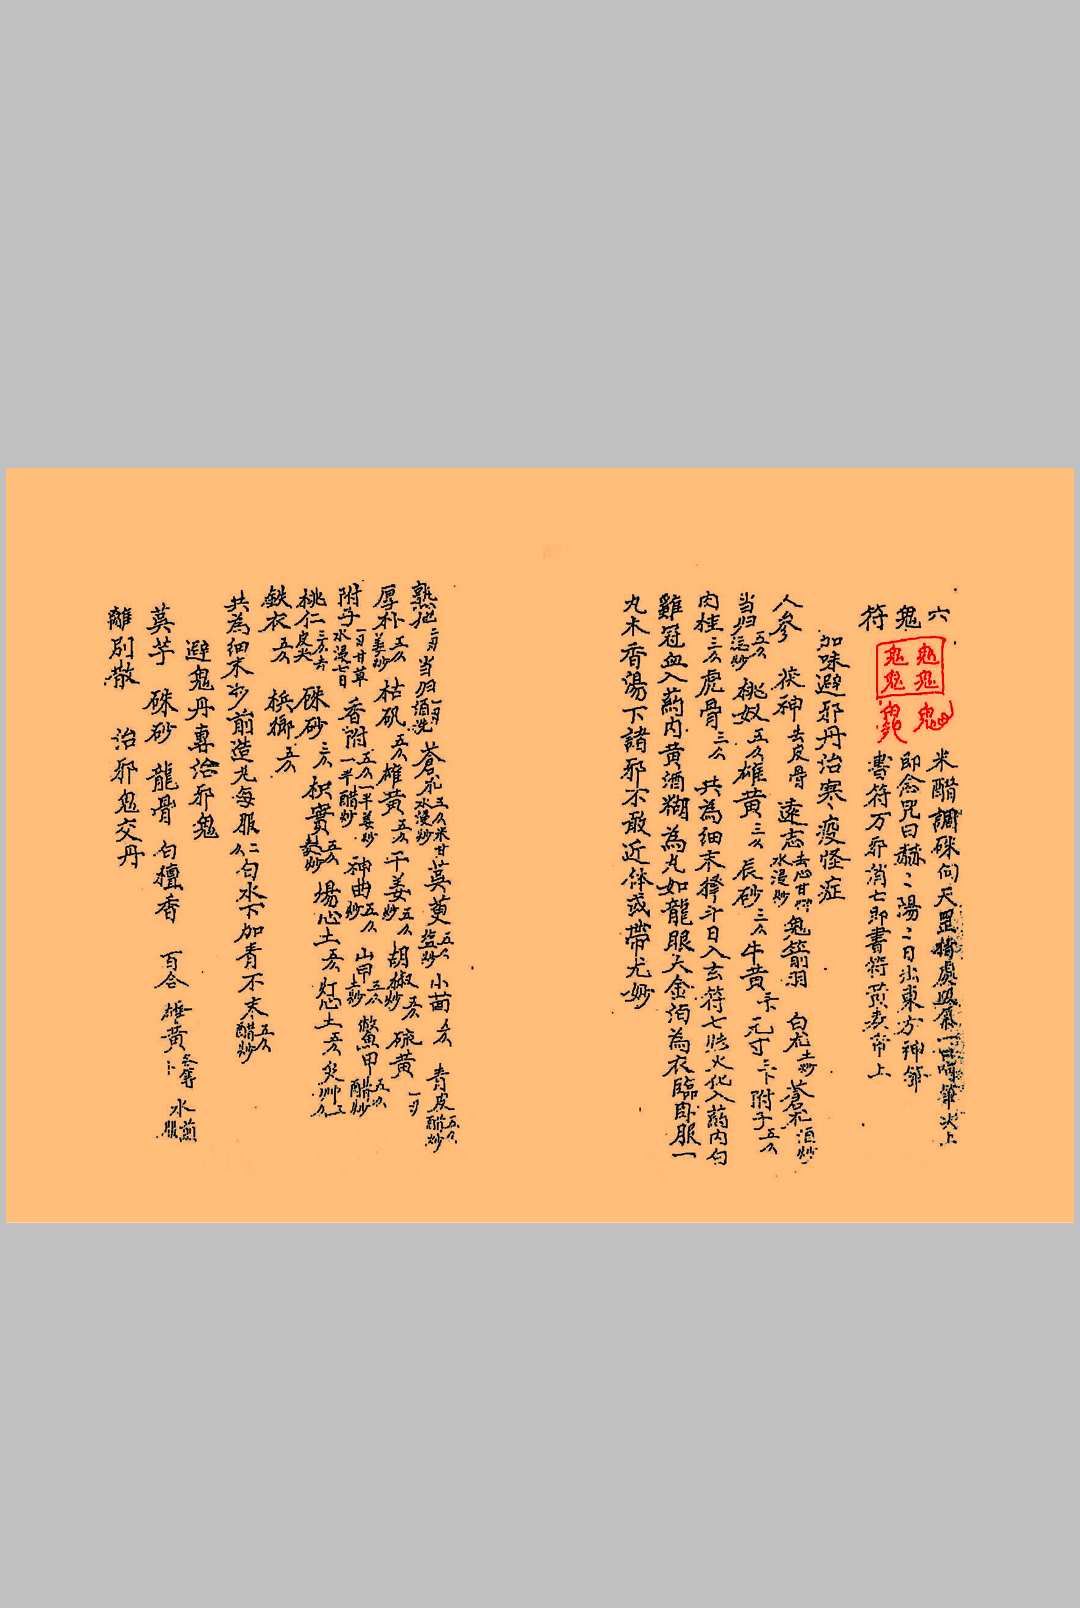 六
鬼
符
鬼鬼
鬼鬼
鬼
米醋調硃向天罡 處吸氣一口 筆尖上
即念咒曰赫〻陽〻日出東方神筆
書符万邪消亡即書符 黄表帋上
加味避邪丹治寒〻疫怪症
人參 茯神去皮骨 遠志去心甘草水浸炒 鬼箭羽 白朮土炒 蒼朮酒炒
当归五么酒炒 桃奴五么 雄黄三么 辰砂三么 牛黄三卜 元寸三卜 附子五么
肉桂三么 虎骨三么 共為細末擇斗日入玄符七 火化入葯内勻
雞冠血入葯内黄酒糊為丸如龍眼大金泊為衣臨卧服一
丸木香湯下諸邪不敢近体或帶尤妙
熟地二刃 当归一刃酒洗 蒼朮五么米甘水浸炒 茱萸五么盐炒 小茴五么 青皮五么醋炒
厚朴五么姜炒 枯矾五么 雄黄五么 干姜五么炒 胡椒五么炒 硫黄一刃
附子一刃甘草水浸七日 香附五么一半姜炒一半醋炒 神曲五么炒 山甲五么土炒 鱉甲五么醋炒
桃仁三么去皮尖 硃砂三么 枳實五么麩炒 場心土五么 灯心土五么
鉄衣五么 梹榔五么
共為細末炒前造丸每服二么勻水下加青不末五么醋炒
避鬼丹專治邪鬼
莫芋 硃砂 龍骨 白檀香 百合 雄黄各等卜 水煎服
離别散 治邪鬼交丹